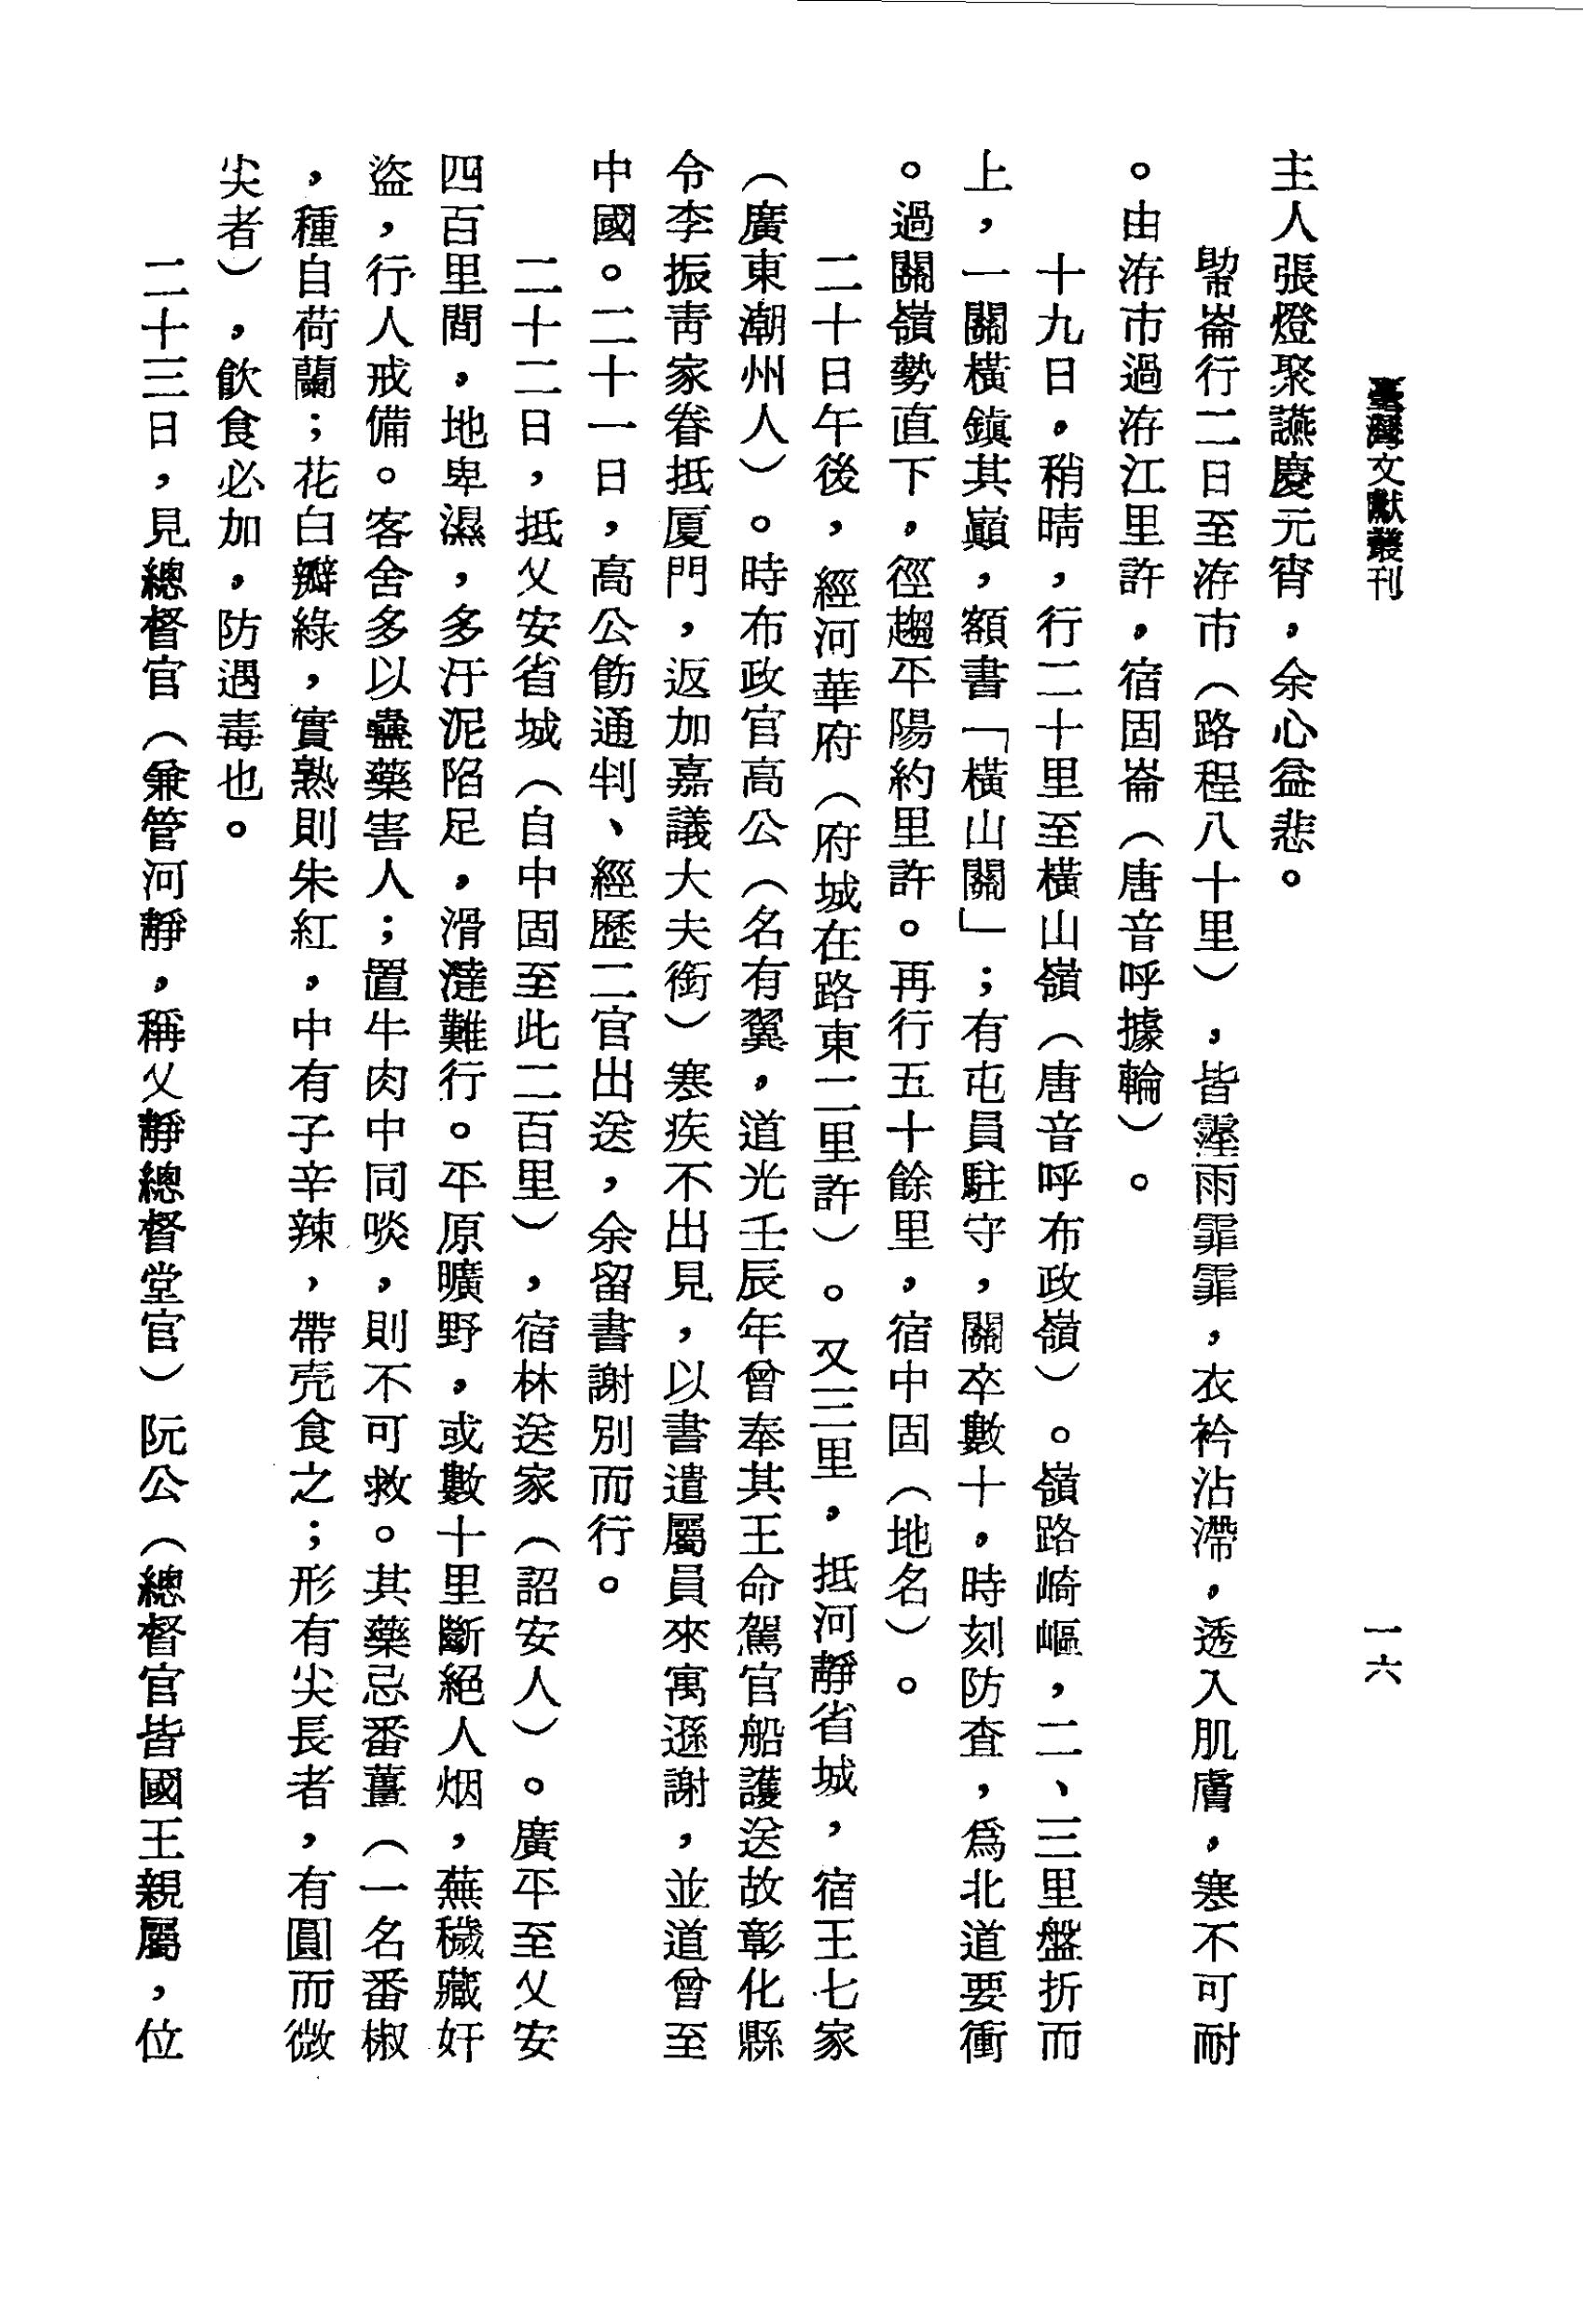 臺灣文獻叢刊
一六
主人張燈聚讌慶元宵，余心益悲。
崙行二日至洊市（路程八十里），皆霪雨霏霏，衣衿沾滯，透入肌膚，寒不可耐
。由洊市過洊江里許，宿固崙（唐音呼據輪）。
十九日，稍晴，行二十里至橫山嶺（唐音呼布政嶺）。嶺路崎嶇，二、三里盤折而
上，一關橫鎮其巔，額書「橫山關」；有屯員駐守，關卒數十，時刻防查，為北道要衝
。過關嶺勢直下，徑趨平陽約里許。再行五十餘里，宿中固（地名）。
二十日午後，經河華府（府城在路東二里許）。又三里，抵河靜省城，宿王七家
（廣東潮州人）。時布政官高公（名有翼，道光壬辰年曾奉其王命駕官船護送故彰化縣
令李振青家眷抵厦門，返加嘉議大夫銜）寒疾不出見，以書遣屬員來寓遜謝，並道曾至
中國。二十一日，高公飭通判、經歷二官出送，余留書謝別而行。
二十二日，抵乂安省城（自中固至此二百里），宿林送家（詔安人）。廣平至乂安
四百里間，地卑濕，多汙泥陷足，滑澾難行。平原曠野，或數十里斷絕人烟，蕪穢藏奸
盜，行人戒備。客舍多以蠱藥害人；置牛肉中同啖，則不可救。其藥忌番薑（一名番椒
，種自荷蘭；花白瓣綠，實熟則朱紅，中有子辛辣，帶壳食之；形有尖長者，有圓而微
尖者），飲食必加，防遇毒也。
二十三日，見總督官（兼管河靜，稱乂靜總督堂官）阮公（總督官皆國王親屬，位